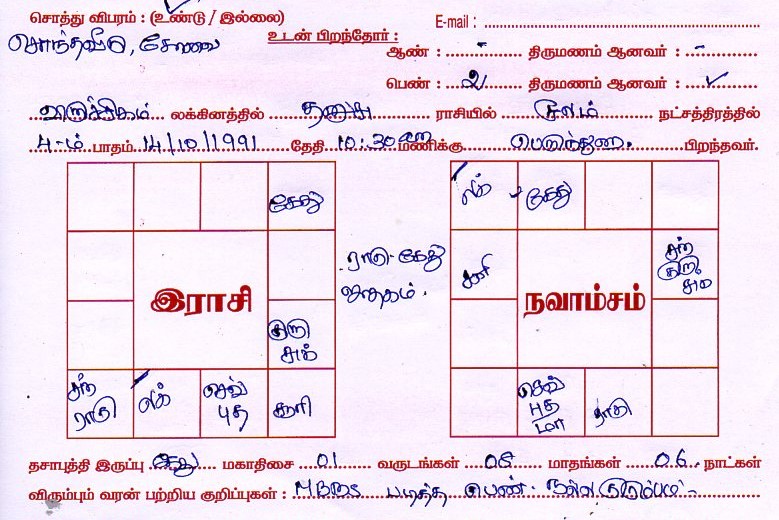 சொத்து விபரம் : (உண்டு / இல்லை)
E-mail :
சொந்தவீடு, சேலை
உடன் பிறந்தோர் :
ஆண் : - திருமணம் ஆனவர் : -
பெண் : 2 திருமணம் ஆனவர் : ✓
விருச்சிகம் லக்கினத்தில் தனுசு ராசியில் மூலம் நட்சத்திரத்தில்
4-ம் பாதம் 14/10/1991 தேதி 10:30 am மணிக்கு பெருந்துறை. பிறந்தவர்.
கேது
ராகு-கேது
ஜாதகம்.
இராசி
குரு
சுக்
சந்
ராகு
லக்
செவ்
புத
சூரி
லக்
கேது
சனி
சந்
குரு
சுக
நவாம்சம்
செவ்
புத
மா
ராகு
தசாபுத்தி இருப்பு கேது மகாதிசை 01 வருடங்கள் 05 மாதங்கள் 06 நாட்கள்
விரும்பும் வரன் பற்றிய குறிப்புகள் : MBBS படித்த பெண்- நல்ல குடும்பம் -